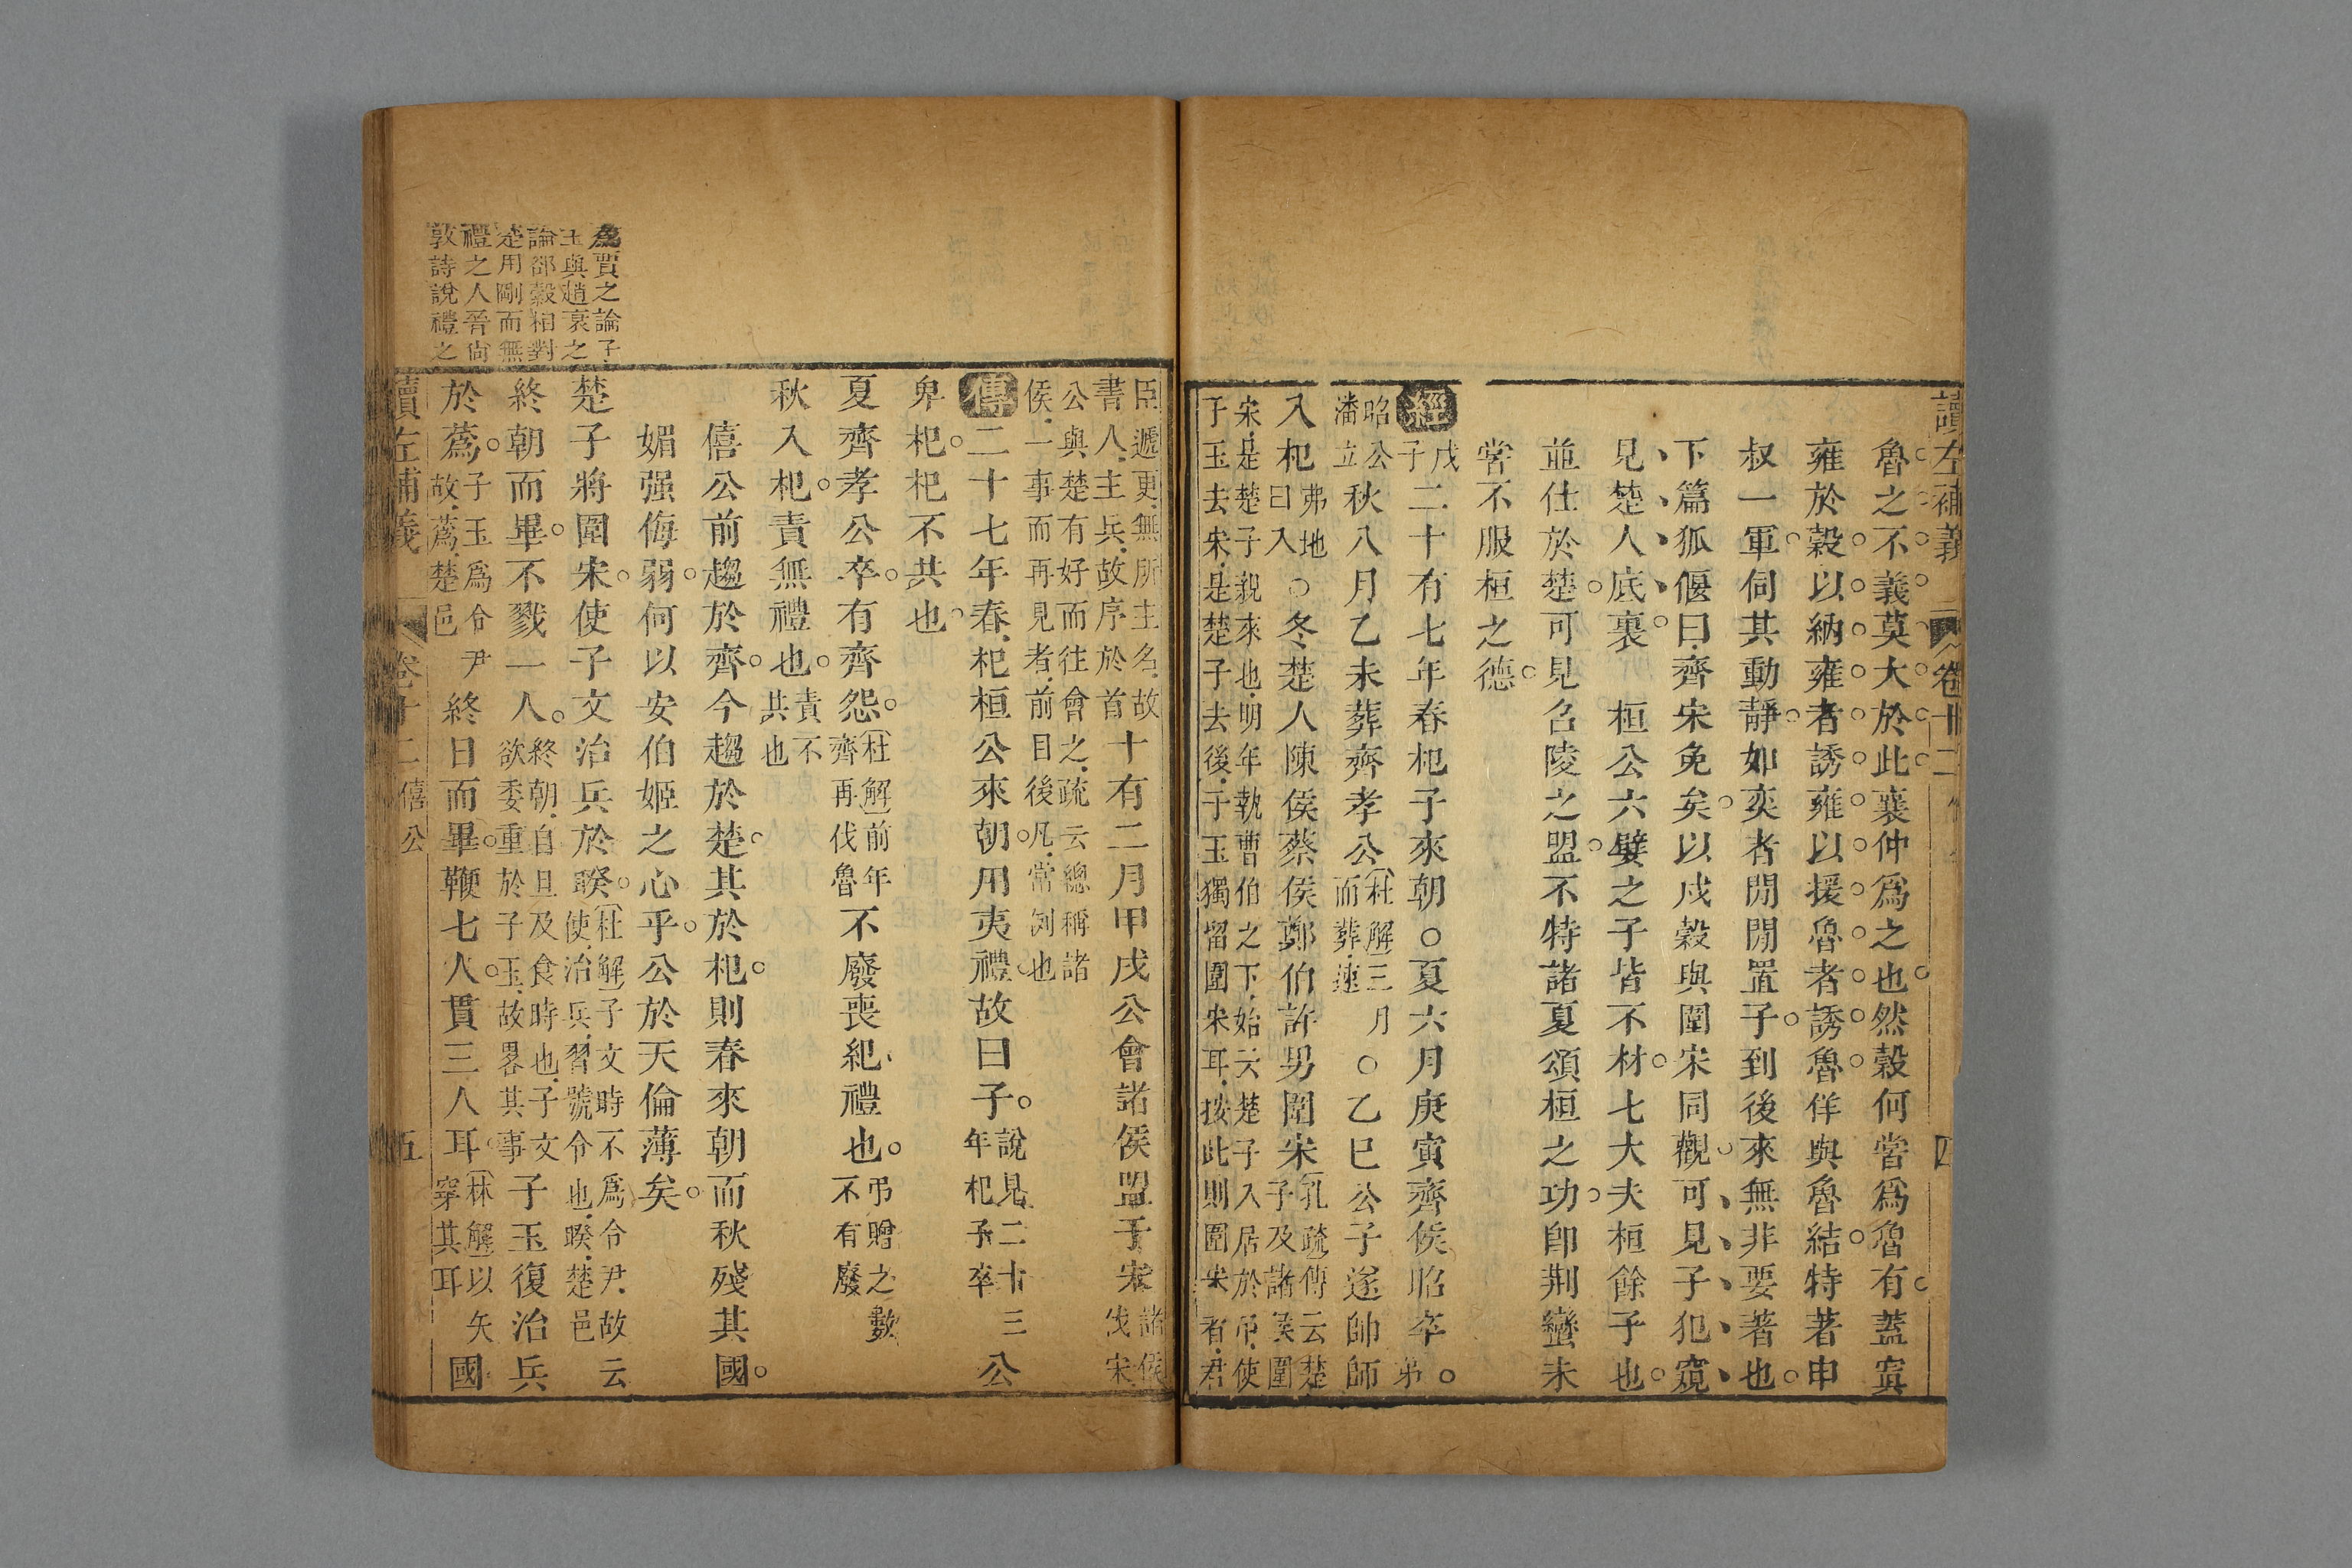 讀左補義 卷十二 四
魯之不義莫大於此襄仲爲之也然穀何當爲魯有蓋寘
雍於穀以納雍者誘雍以援魯者誘魯佯與魯結特著申
叔一軍伺其動靜如奕者閒閒置子到後來無非要著也
下篇狐偃曰齊宋免矣以戍穀與圍宋同觀可見子犯窺
見楚人底裏 桓公六嬖之子皆不材七大夫桓餘子也
並仕於楚可見召陵之盟不特諸夏頌桓之功卽荆蠻未
嘗不服桓之德
經戊子二十有七年春杞子來朝○夏六月庚寅齊侯昭卒弟
昭公潘立秋八月乙未葬齊孝公杜解三月而葬速○乙巳公子遂帥師
入杞弗地曰入○冬楚人陳侯蔡侯鄭伯許男圍宋孔疏傳云楚子及諸侯圍
宋是楚子親來也明年執曹伯之下始云楚子入居於申使
子玉去宋是楚子去後子玉獨留圍宋耳按此則圍宋者君
臣遞更無所主名故
書人主兵故序於首十有二月甲戌公會諸侯盟于宋諸侯伐宋
公與楚有好而往會之疏云總稱諸
侯一事而再見者前目後凡常例也
傳二十七年春杞桓公來朝用夷禮故曰子說見二十三年杞子卒公
卑杞杞不共也
夏齊孝公卒有齊怨杜解前年齊再伐魯不廢喪紀禮也弔贈之數不有廢
秋入杞責無禮也責不共也
僖公前趨於齊今趨於楚其於杞則春來朝而秋殘其國
媚强侮弱何以安伯姬之心乎公於天倫薄矣
楚子將圍宋使子文治兵於睽杜解子文時不爲令尹故云使治兵習號令也睽楚邑
終朝而畢不戮一人終朝自旦及食時也子文欲委重於子玉故畧其事子玉復治兵
於蔿子玉爲令尹故蔿楚邑終日而畢鞭七人貫三人耳林解以矢穿其耳國
讀左補義 卷十二 僖公 五
蔿賈之論子
玉與趙衰之
論郤縠相對
楚用剛而無
禮之人晉尙
敦詩說禮之